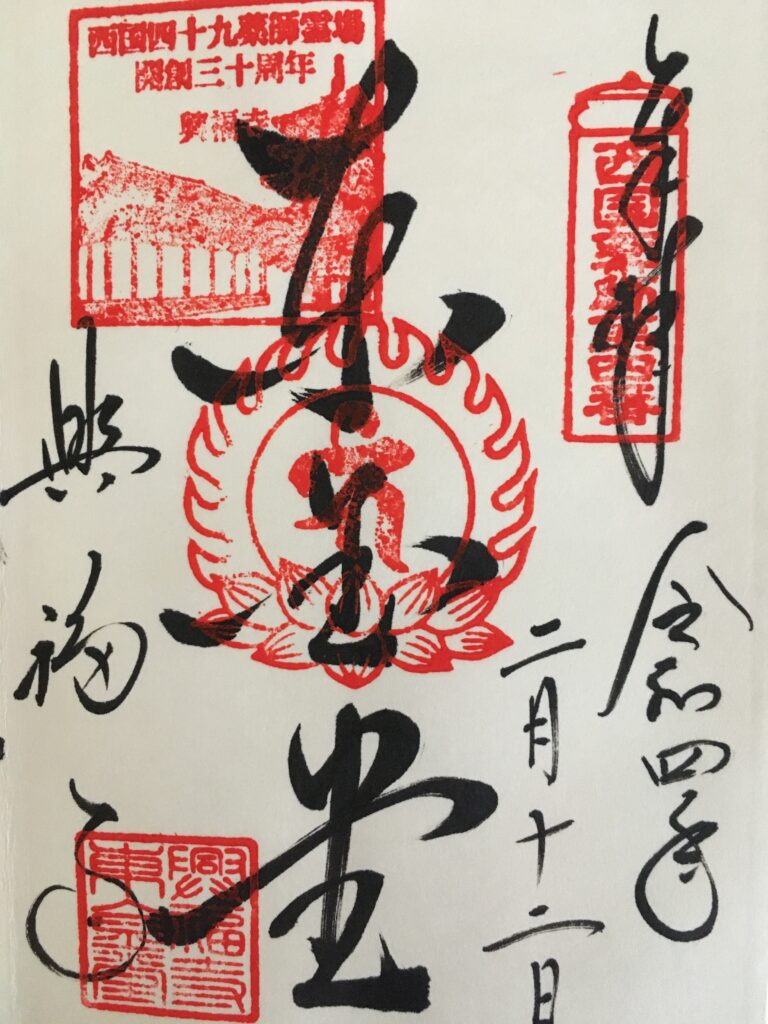 奉拝
西国薬師第四番
令和四年
二月十二日
西国四十九薬師霊場
開創三十周年
興福寺
東金堂
興福寺
興福寺
東金堂